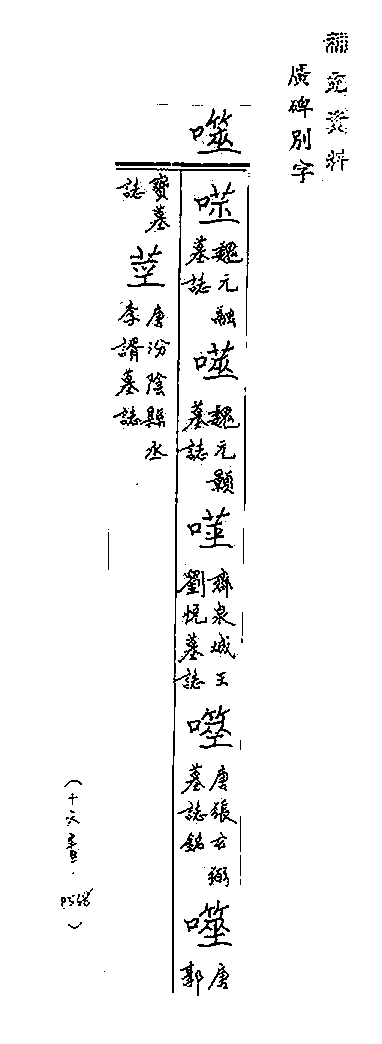 補充資料
廣碑別字
噬
魏元融墓誌
魏元顥墓誌
齊泉城王劉悅墓誌
唐張玄弼墓誌銘
唐郭
寶墓誌
唐汾陰縣丞李諝墓誌
(十六畫.P548)